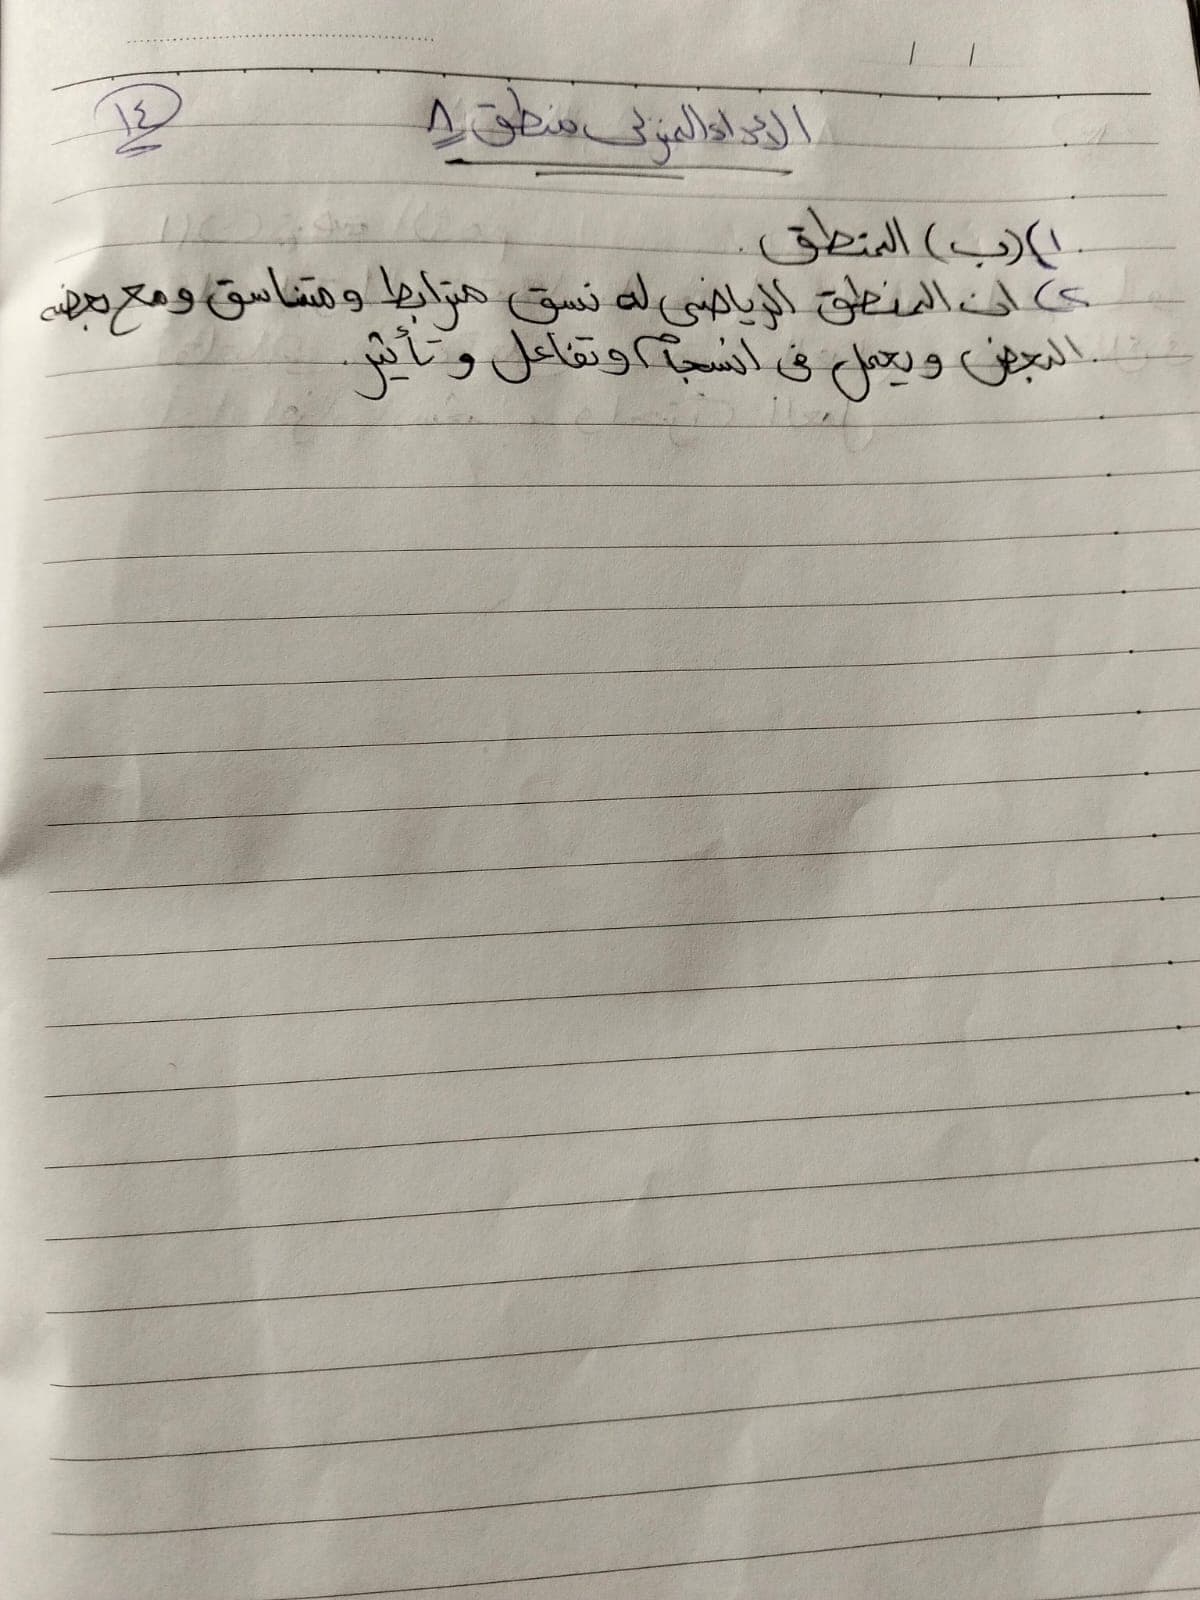 / /
الاداء المنزلى منطق ٨
١٤
١) (ب) المنطق.
٢) ان المنطق الرياضى له نسق مترابط ومتناسق ومع بعضه
البعض ويعمل فى انسجام وتفاعل وتأثير.